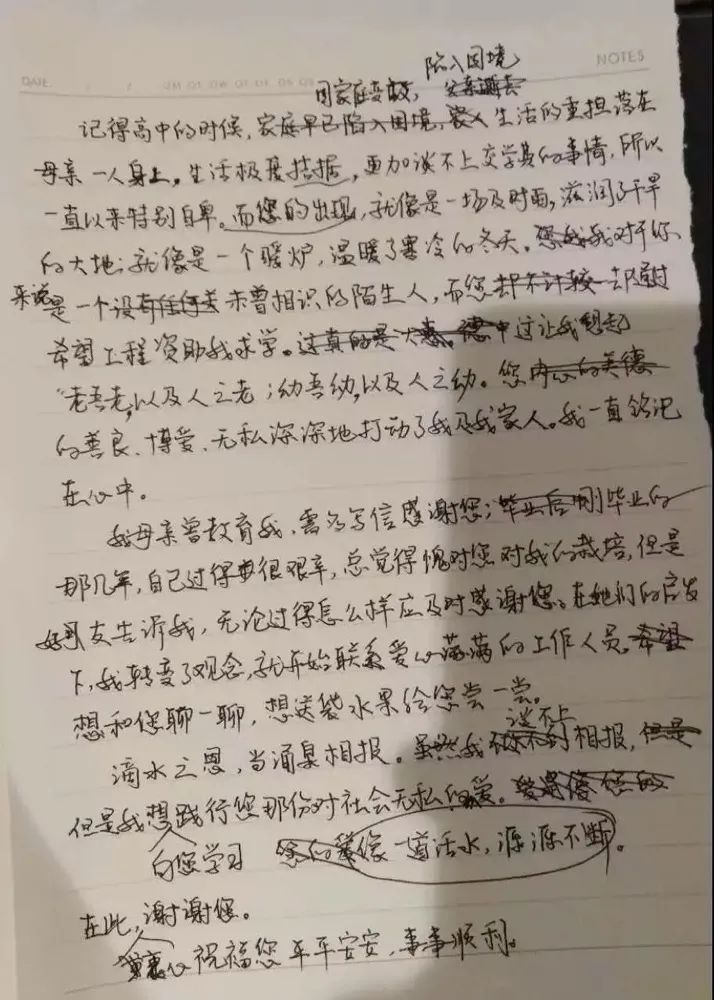 DATE
NOTES
陷入困境
因家庭变故,
记得高中的时候,家庭早已陷入困境,家人生活的重担落在
母亲一人身上。生活极度拮据,更加谈不上交学费的事情,所以
一直以来特别自卑。而您的出现,就像是一场及时雨,滋润了干旱
的大地;就像是一个暖炉,温暖了寒冷的冬天。您我我对于你
来说是一个没有任何关未曾相识的陌生人,而您却不计较却通过
希望工程资助我求学。这真的是大事。德中这让我想起
“老吾老,以及人之老;幼吾幼,以及人之幼。您内心的美德
的善良、博爱、无私深深地打动了我及我家人。我一直铭记
在心中。
我母亲曾教育我,需多写信感谢您;毕业后刚毕业的
那几年,自己过得也很艰辛,总觉得愧对您对我的栽培,但是
好朋友告诉我,无论过得怎么样应及时感谢您。在她们的启发
下,我转变了观念,就开始联系爱心满满的工作人员。希望
想和您聊一聊,想送袋水果给您尝一尝。
谈不上
滴水之恩,当涌泉相报。虽然我做不到相报,但是
但是我想践行您那份对社会无私的爱。
向您学习 您的爱像一道活水,源源不断。
在此,谢谢您。
衷心祝福您平平安安,事事顺利。